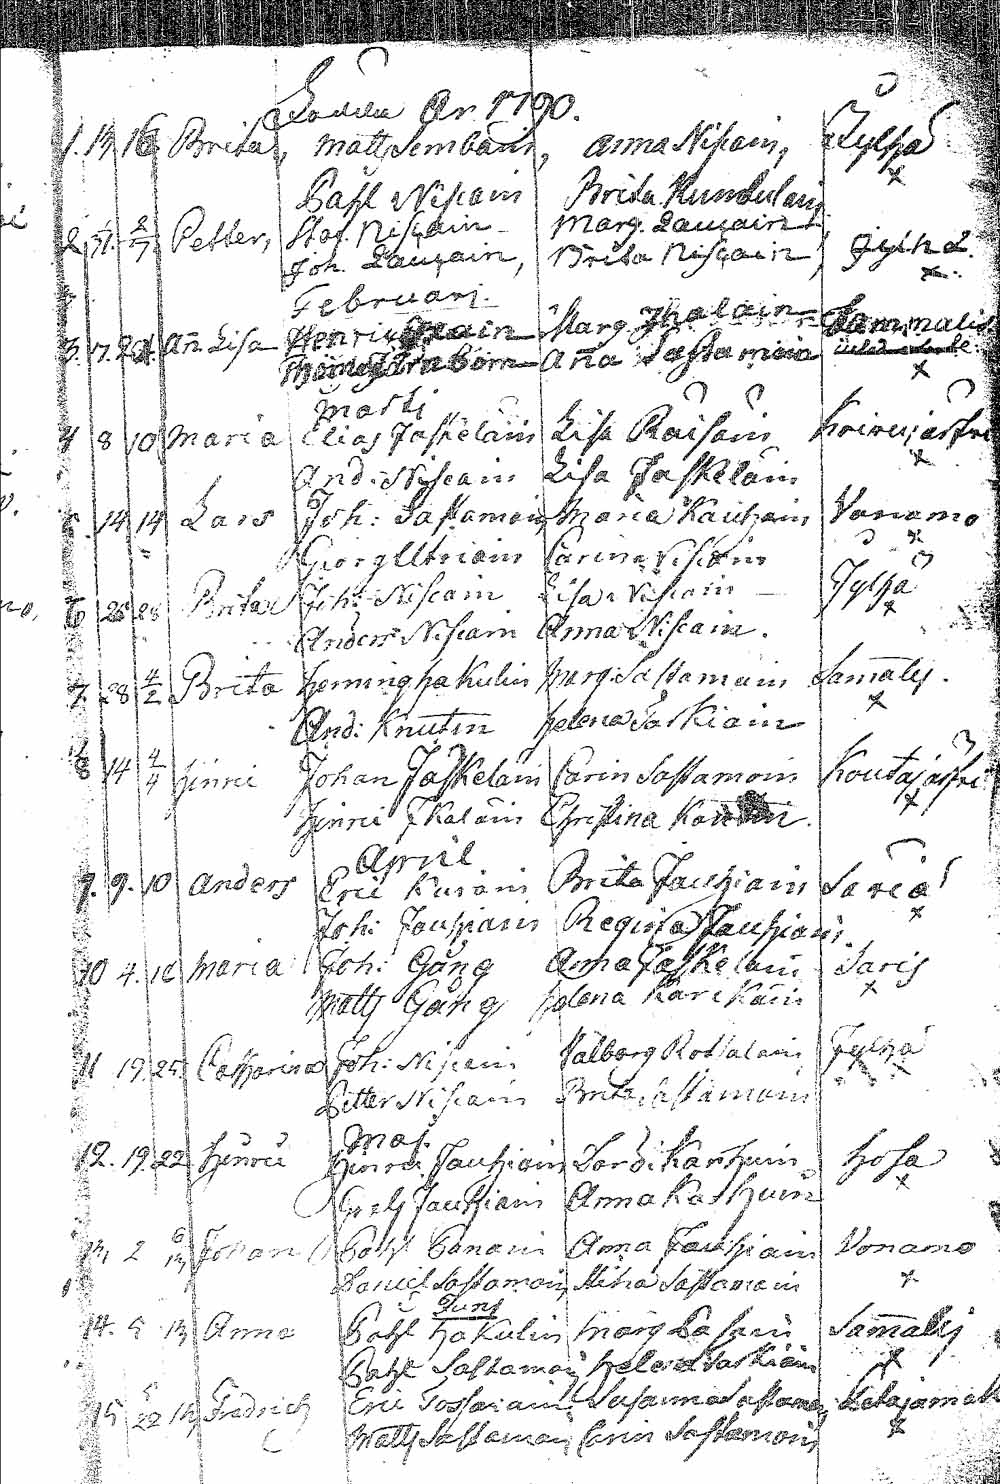 År 1790.
1. 13 16 Brita, Matts Sembain, Anna Niskain, Jylhä
Påhl Niskain Brita Kumbulain
2 Petter, Staf. Niskain Marg. Laukain
Joh. Laukain, Brita Niskain, Jylhä.
Februari
3. 17. 21. Añ Lisa Henric Marg.
Aña Sastamoin
Marti
4 8 10 Maria Elias Jaskelain Lisa Raisain Koirujärfvi
And: Niskain Lisa Jaskelain
14 14 Lars Joh: Sastamoin Maria Kauhain Vonamo
Georg Utriain Carin Niskain
6 26 28 Brita Joh: Niskain Lisa Niskain Jylhä
Anders Niskain Anna Niskain.
7. 28 4/2 Brita Heming Hakulin Marg: Sastamoin Samalij.
And: Knutin Helena Saskiain
8 14 4/4 Hinric Johan Jaskelain Carin Sastamoin Koutajärfvi
Hinric Ikalain Christina
April
9. 9. 10 Anders Eric Kurain Brita Jauhiain Saria
Joh: Jauhiain Regina Jauhiain.
10 4. 10 Maria Joh: Gång Anna Jaskelain Saris
Matts Gång Helena Karikain
11 19. 25 Catharina Joh: Niskain Valborg Rotsalain Jylhä
Petter Niskain Brita Sastamoin
Maj.
12. 19. 22 Hinric Hinric Jauhiain Lardi Karhuin Hosa
Grels Jauhiain Anna Karhuin
13, 2 6/13 Johan Påhl Panain Anna Jauhiain Vonamo
Daniel Sastamoin Stina Sastamoin
Junj
14. 5 13 Anna Påhl Hakulin Marg Lasain Samalij
Påhl Sastamoin Helena Saskiain
15 5/22 Fredrich Eric Tossavain Susanna Sastamoin
Matts Sastamoin Carin Sastamoin